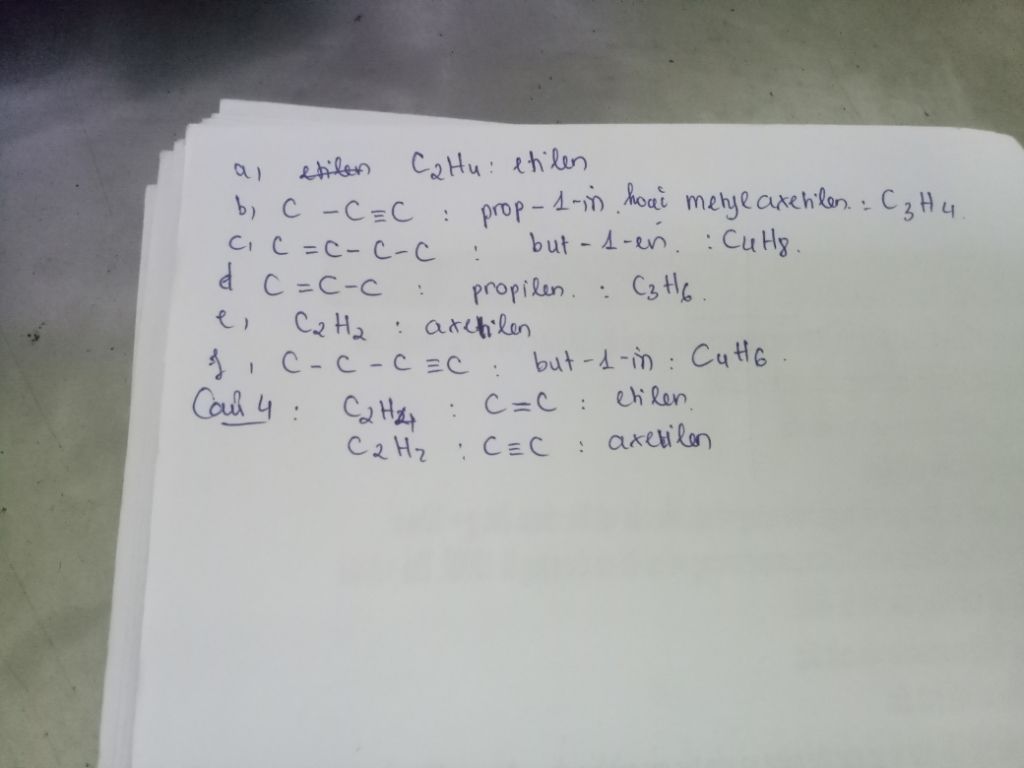 a, etilen C2H4: etilen
b, C -C≡C : prop-1-in. hoặc metyl axetilen. : C3H4.
c, C =C- C-C : but-1-en. : C4H8.
d C =C-C : propilen. : C3H6.
e, C2H2 : axetilen
f, C-C-C≡C : but-1-in : C4H6.
Câu 4 : C2H4 : C=C : etilen.
C2H2 : C≡C : axetilen